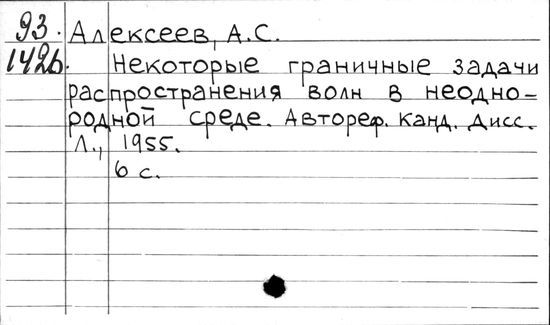 93. Алексеев, А.С.
142б. Некоторые граничные задачи
распространения волн в неодно-
родной среде. Автореф. канд. дисс.
Л., 1955.
6 с.